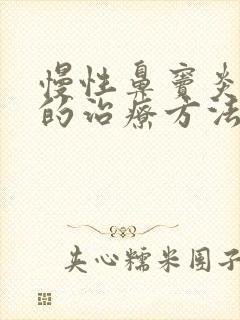 慢性鼻窦炎
的治疗方法
夹心糯米团子